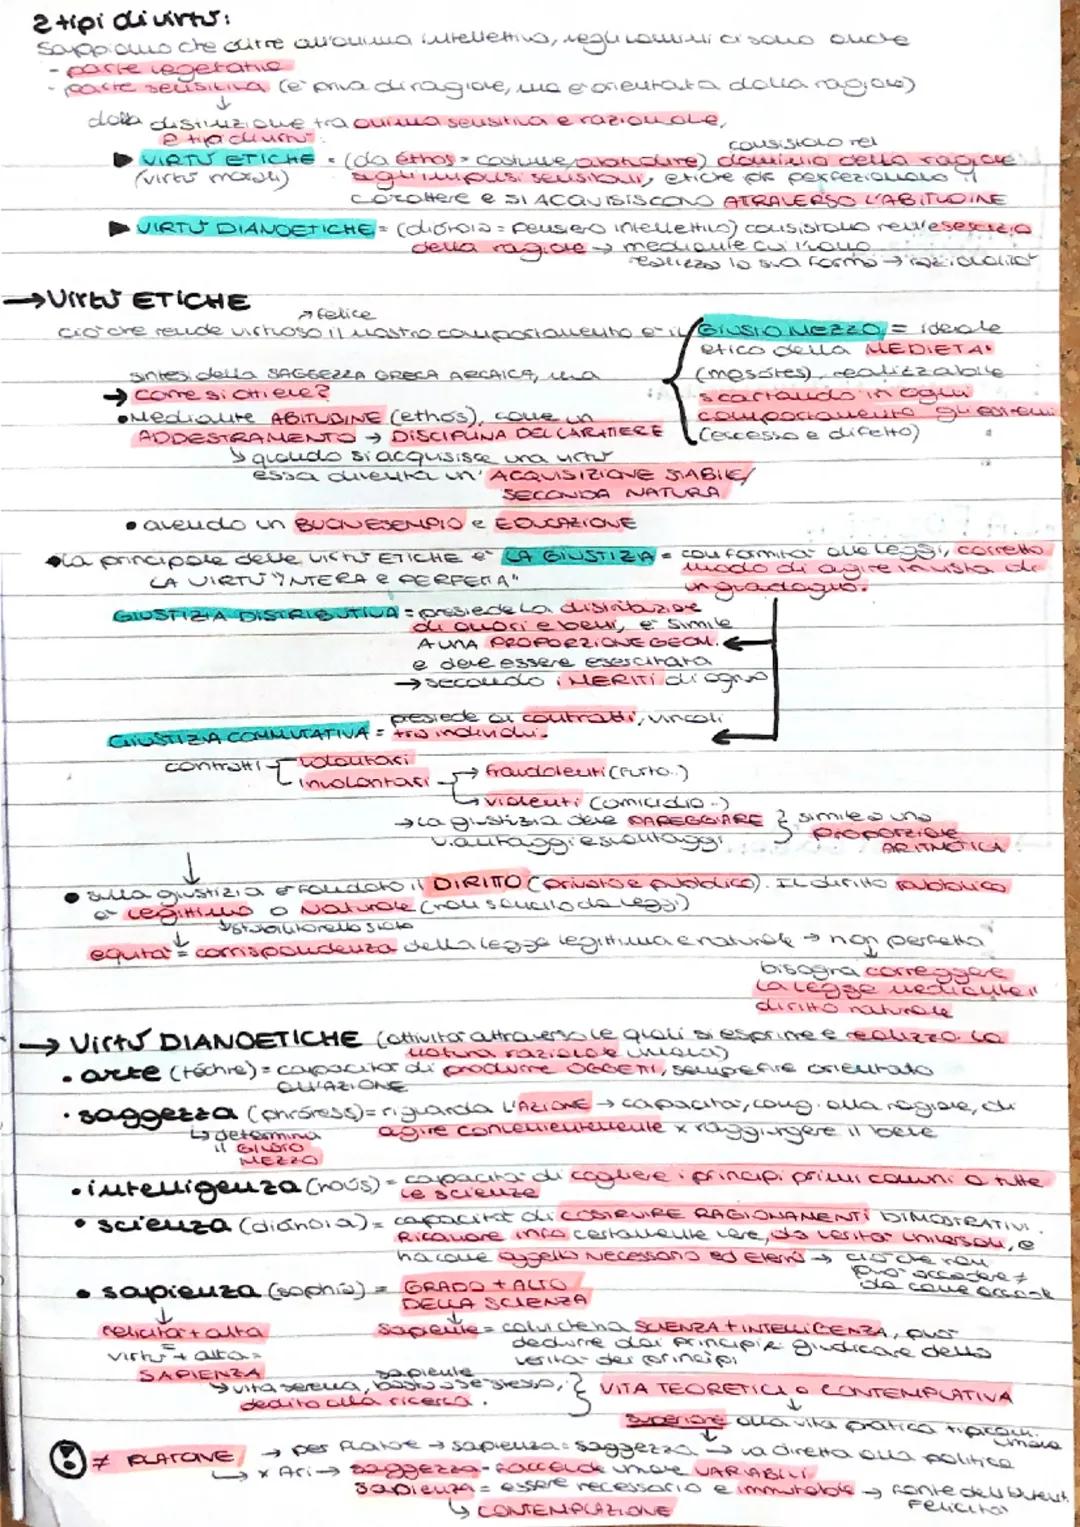 2 tipi di virtù:
Sappiamo che oltre all'anima intellettiva, negli uomini ci sono anche
- parte vegetativa
- parte sensitiva (è priva di ragione, ma è orientata dalla ragione)
dalla distinzione tra anima sensitiva e razionale,
2 tipi di virtù:
VIRTÙ ETICHE = (da éthos = costume, ) consistono nel dominio della ragione
(virtù morali) sugli impulsi sensitivi, etiche perfezionano il
carattere e SI ACQUISISCONO ATTRAVERSO L'ABITUDINE
VIRTÙ DIANOETICHE = (diánoia = pensiero intellettivo) consistono nell'esercizio
della ragione → mediante cui l'uomo
realizza la sua forma → razionalità
→ Virtù ETICHE
→ felice
ciò che rende virtuoso il nostro comportamento è il GIUSTO MEZZO = ideale
etico della MEDIETÀ
sintesi della SAGGEZZA GRECA ARCAICA, (mesótes), realizzabile
→ come si ottiene? scartando in ogni
• Mediante ABITUDINE (ethos), come un comportamento gli estremi
ADDESTRAMENTO → DISCIPLINA DEL CARATTERE (eccesso e difetto)
↳ quando si acquisisce una virtù
essa diventa un' ACQUISIZIONE STABILE/
SECONDA NATURA
• avendo un BUON ESEMPIO e EDUCAZIONE
• La principale delle VIRTÙ ETICHE è LA GIUSTIZIA = conformità alle leggi, corretto
LA VIRTÙ "INTERA E PERFETTA" modo di agire in vista di
un guadagno.
GIUSTIZIA DISTRIBUTIVA = presiede la distribuzione
di onori e beni, è simile
A UNA PROPORZIONE GEOM.
e deve essere esercitata
→ secondo i MERITI di ognuno
GIUSTIZIA COMMUTATIVA = presiede ai contratti, vincoli
tra individui.
contratti volontari
involontari → fraudolenti (furto..)
↳ violenti (omicidio..)
→ La giustizia deve PAREGGIARE } simile a una
vantaggi e svantaggi PROPORZIONE
ARITMETICA
↓
• sulla giustizia è fondato il DIRITTO (privato e pubblico). Il diritto pubblico
è legittimo o Naturale (non sancito da leggi)
↳ stabilito nello stato
equità = corrispondenza della legge legittima e naturale → non perfetta
↓
bisogna correggere
la legge mediante il
diritto naturale
→ Virtù DIANOETICHE (attività attraverso le quali si esprime e realizza la
natura razionale umana)
• arte (téchne) = capacità di produrre OGGETTI, sempre fine orientato
ALL'AZIONE
• saggezza (phrónesis) = riguarda L'AZIONE → capacità, cong. alla ragione, di
↳ determina agire convenientemente x raggiungere il bene
il GIUSTO
MEZZO
• intelligenza (noús) = capacità di cogliere i principi primi comuni a tutte
le scienze
• scienza (diánoia) = capacità di COSTRUIRE RAGIONAMENTI DIMOSTRATIVI.
Ricavare info certamente vere, da verità universali, e
ha come oggetto NECESSARIO ed ETERNO → ciò che non
può accadere ≠
da come accade
• sapienza (sophía) = GRADO + ALTO
DELLA SCIENZA
↓
felicità + alta sapiente = colui che ha SCIENZA + INTELLIGENZA, può
= dedurre dai principi e giudicare della
virtù + alta = verità dei principi
SAPIENZA sapiente
↳ vita serena, basta a se stesso, } VITA TEORETICA o CONTEMPLATIVA
dedito alla ricerca. ↓
superiore alla vita pratica
umana
≠ PLATONE → per Platone → sapienza = saggezza → va diretta alla politica
↳ x Ari → saggezza = faccende umane VARIABILI
sapienza = essere necessario e immutabile → fonte dell'autent.
felicità
↳ CONTEMPLAZIONE